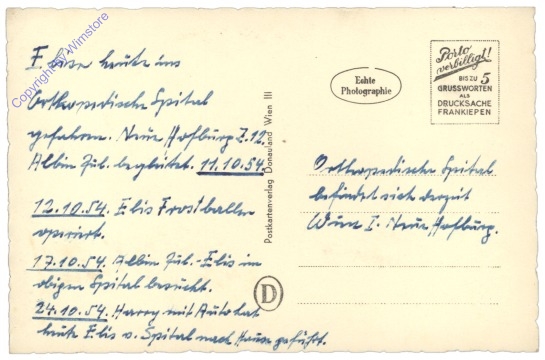 Copyright by Wimstore
E. lise heute ins
Orthopedische Spital
gefahren. Neue Hofburg Z. 12.
Albin Jul. begleitet. 11.10.54.
12.10.54. Elis Frostballen
operiert.
17.10.54. Albin Jul. - Elis im
obigen Spital besucht.
24.10.54. Harry mit Auto hat
heute Elis v. Spital nach Hause geführt.
Postkartenverlag Donauland Wien III
D
Echte
Photographie
Porto
verbilligt!
BIS ZU 5
GRUSSWORTEN
ALS
DRUCKSACHE
FRANKIEREN
Orthopedische Spital
befindet sich derzeit
Wien I. Neue Hofburg.